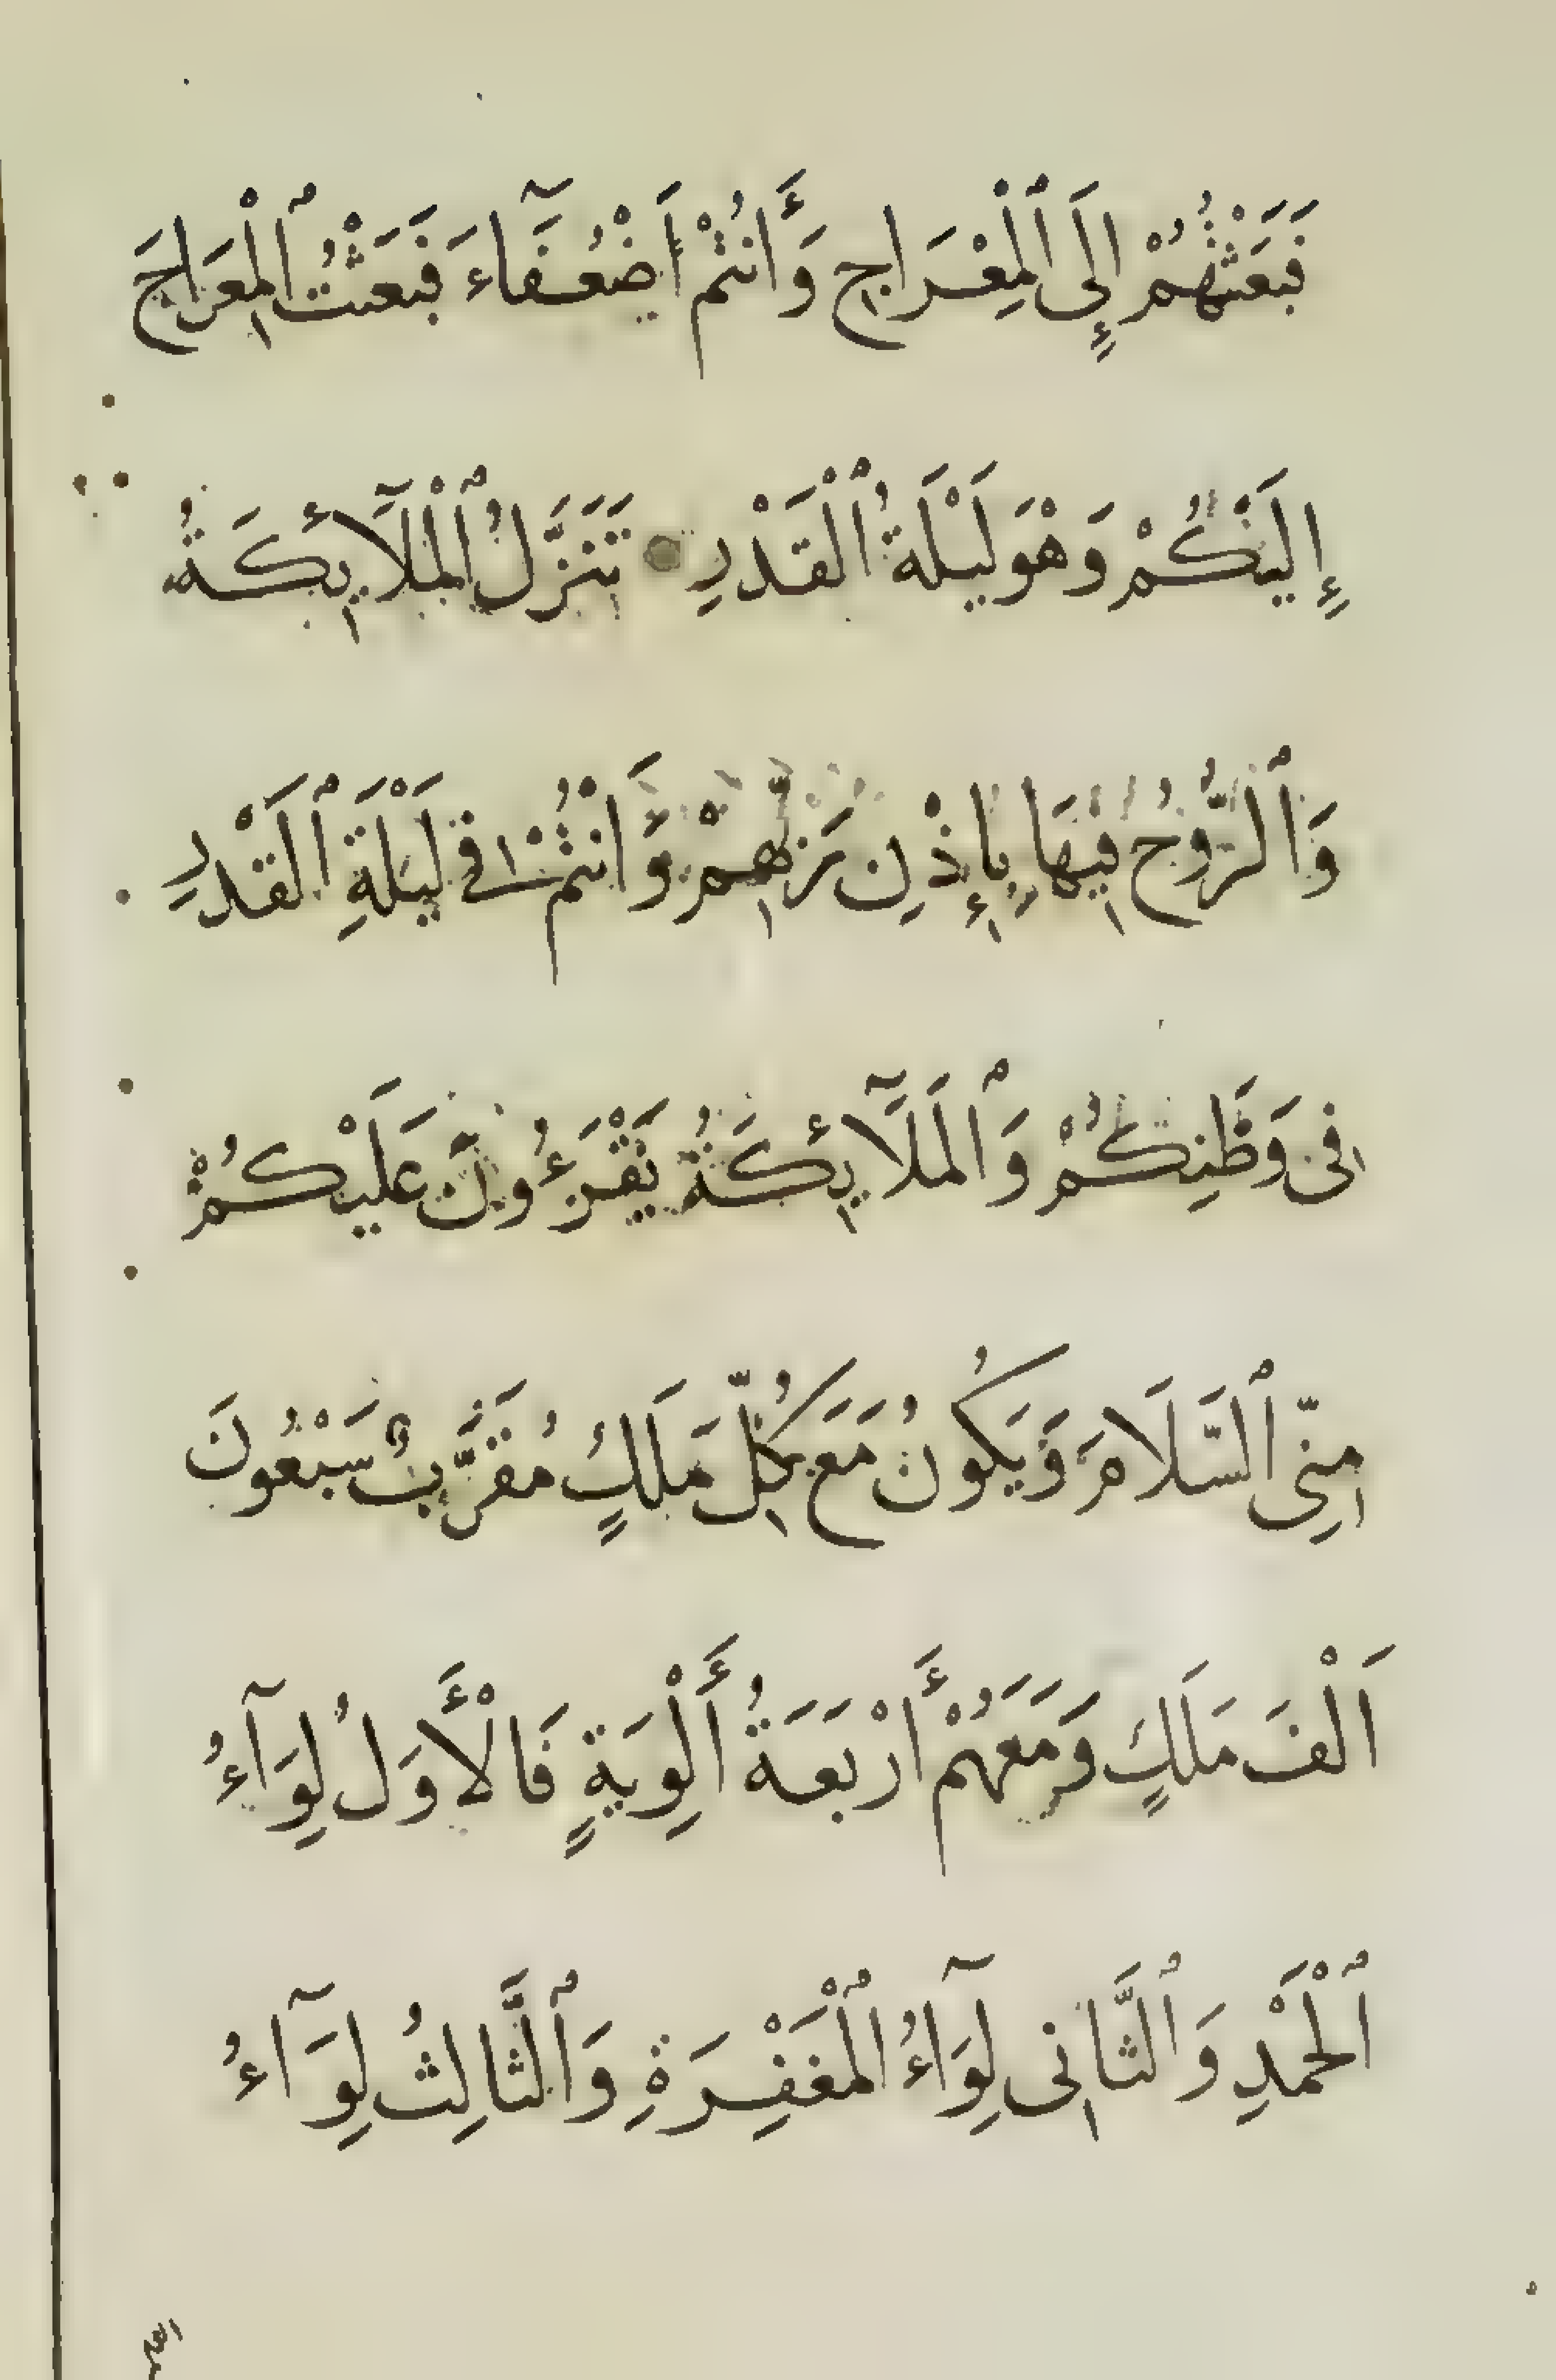 فَبَعَثْتُهُمْ إِلَى ٱلْمِعْرَاجِ وَأَنْتُمْ أَضْعُفَآءَ فَبَعَثْتُ ٱلْمِعْرَاجَ
إِلَيْكُمْ وَهْوَ لَيْلَةُ ٱلْقَدْرِ تَتَنَزَّلُ ٱلْمَلَآئِكَةُ
وَٱلرُّوحُ فِيهَا بِإِذْنِ رَبِّهِمْ وَأَنْتُمْ فِي لَيْلَةِ ٱلْقَدْرِ
فِى وَطَنِكُمْ وَٱلْمَلَآئِكَةُ يَقْرَءُونَ عَلَيْكُمْ
مِنِّى ٱلسَّلَامَ وَيَكُونُ مَعَ كُلِّ مَلَكٍ مُقَرَّبٍ سَبْعُونَ
اَلْفَ مَلَكٍ وَمَعَهُمْ أَرْبَعَةُ أَلْوِيَةٍ فَالْأَوَلُ لِوَآءُ
ٱلْحَمْدِ وَٱلثَّانِى لِوَآءُ ٱلْمَغْفِرَةِ وَٱلثَّالِثُ لِوَآءُ